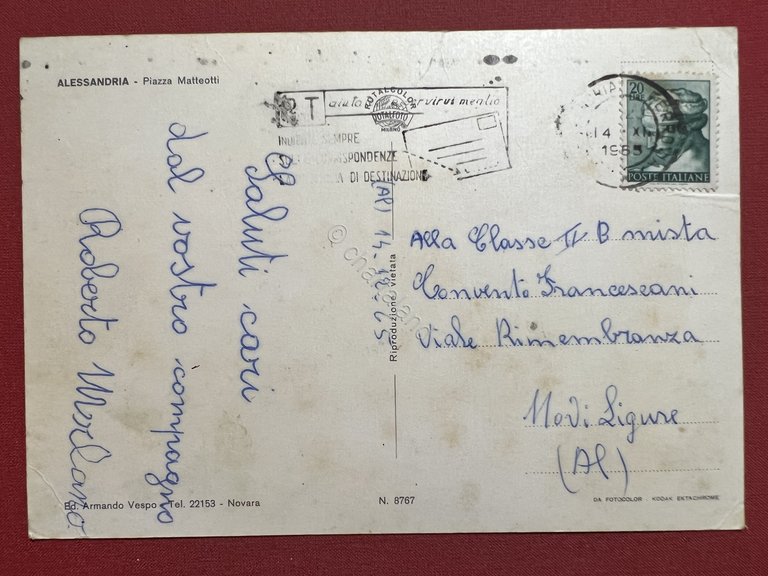 ALESSANDRIA - Piazza Matteotti
P T aiuta
r vi servirvi meglio
ROTALCOLOR
ROTALFOTO
MILANO
SEMPRE
CORRISPONDENZE
DI DESTINAZIONE
14 XII
1965
20
LIRE
POSTE ITALIANE
Saluti cari
dal vostro compagno
Roberto Merlano
(AP) 14-12-65
Riproduzione vietata
Alla Classe II B mista
Convento Francescani
Viale Rimembranza
Novi Ligure
(Al)
Ed. Armando Vespo - Tel. 22153 - Novara
N. 8767
DA FOTOCOLOR KODAK EKTACHROME